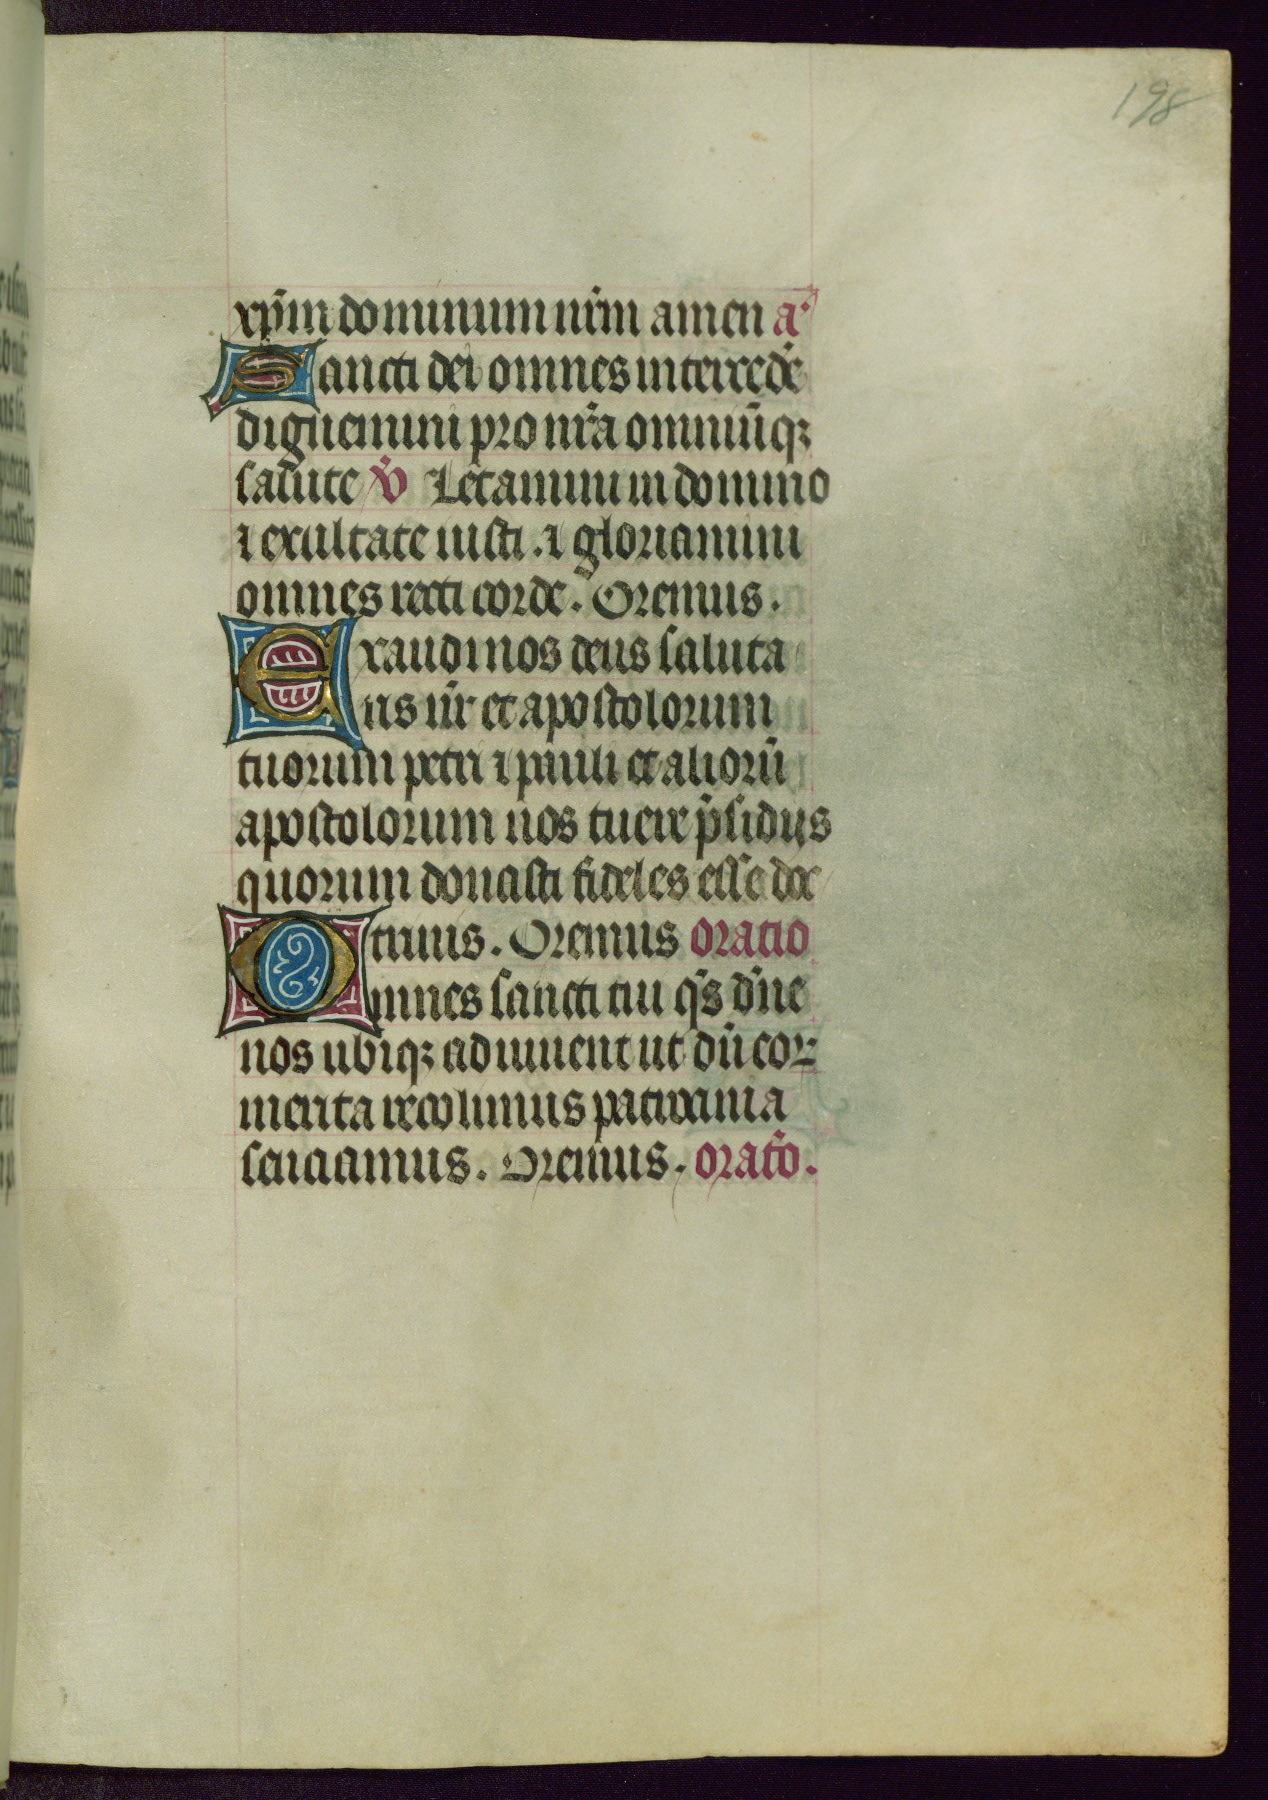 198
xp̄m dominum nr̄m amen a
Sancti dei omnes intercede
dignemini pro nr̄a omniūqꝫ
salute v̄ Letamini in domino
⁊ exultate iusti . ⁊ gloriamini
omnes recti corde . Oremus .
Exaudi nos deus saluta
ris nr̄ et apostolorum
tuorum petri ⁊ pauli et aliorū
apostolorum nos tuere p̄sidiis
quorum donasti fideles esse doc
trinis . Oremus oratio
Omnes sancti tui qs̄ dn̄e
nos ubiqꝫ adiuuent ut dū eoꝝ
merita recolimus patrocinia
senciamus . Oremus . orat̄o .